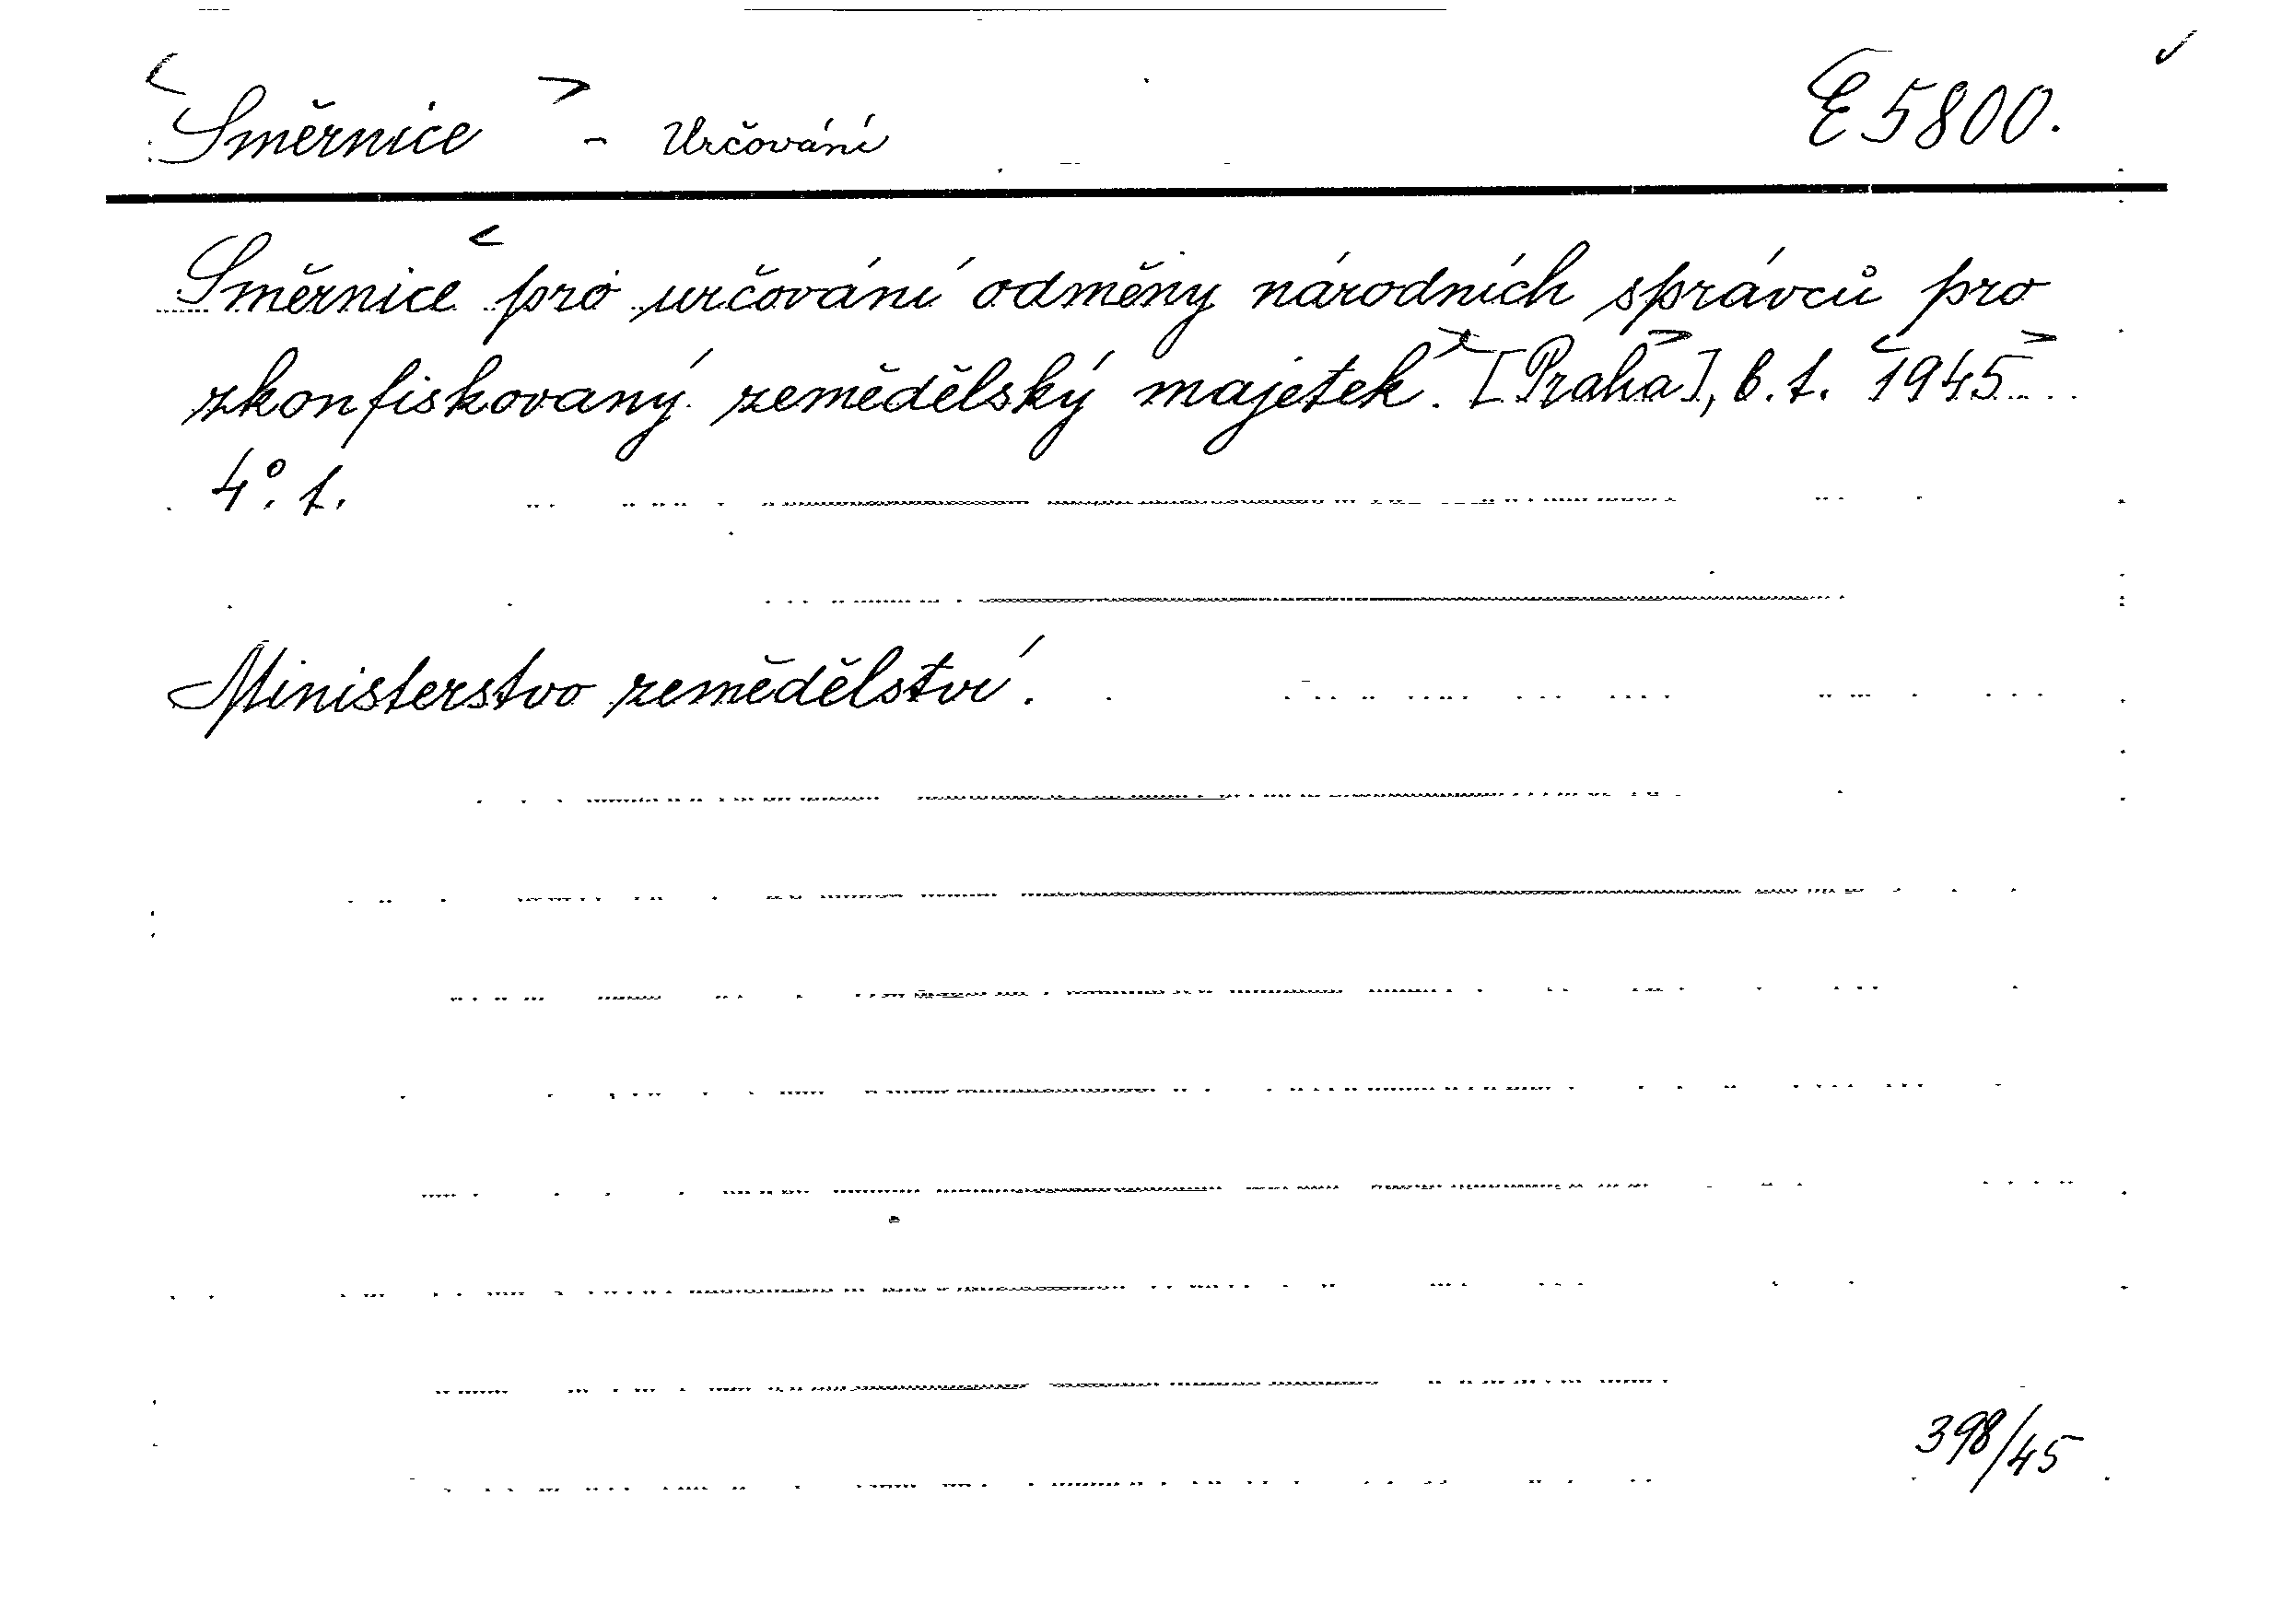 <Směrnice> - Určování E 5800.
<Směrnice pro určování odměny národních správců pro
zkonfiskovaný zemědělský majetek.> [Praha>], b. t. <1945>
4°. t.
Ministerstvo zemědělství.
398/45